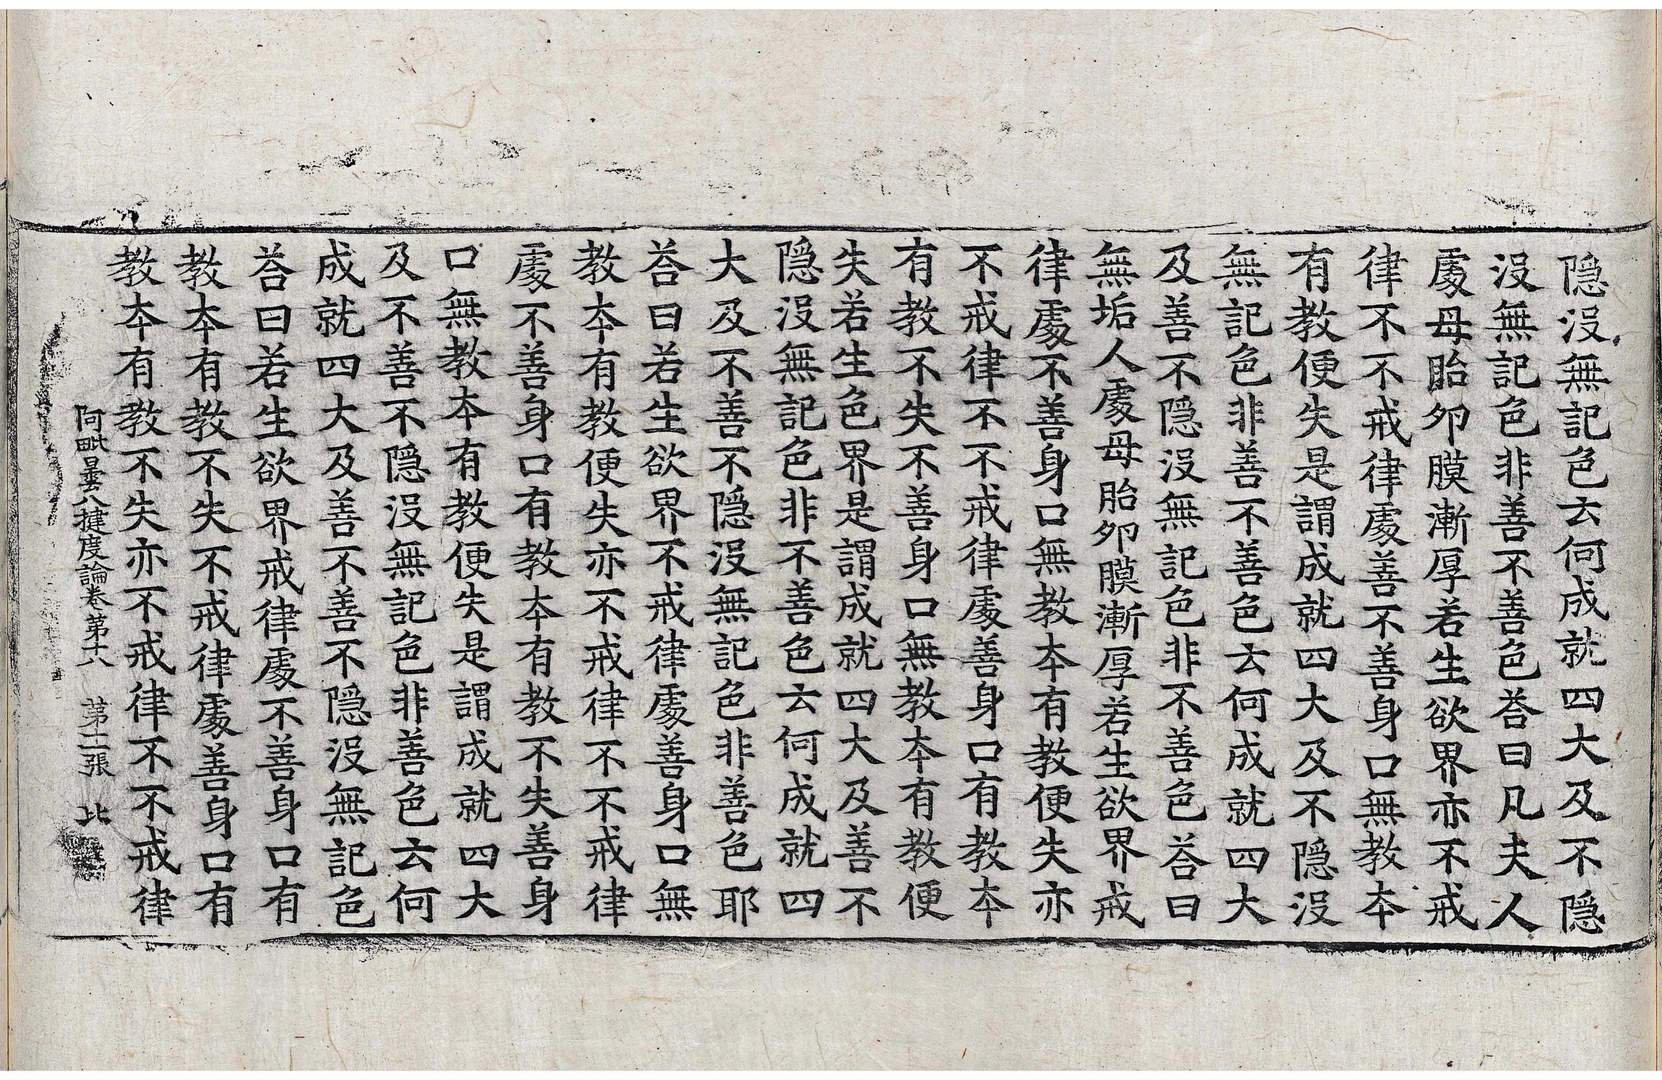 隐没無記色云何成就四大及不隐
没無記色非善不善色荅曰凡夫人
處母胎夘膜漸厚若生欲界亦不戒
律不不戒律處善不善身口無教本
有教便失是謂成就四大及不隐没
無記色非善不善色云何成就四大
及善不隐没無記色非不善色荅曰
無垢人處母胎夘膜漸厚若生欲界戒
律處不善身口無教本有教便失亦
不戒律不不戒律處善身口有教本
有教不失不善身口無教本有教便
失若生色界是謂成就四大及善不
隐没無記色非不善色云何成就四
大及不善不隐没無記色非善色耶
荅曰若生欲界不戒律處善身口無
教本有教便失亦不戒律不不戒律
處不善身口有教本有教不失善身
口無教本有教便失是謂成就四大
及不善不隐没無記色非善色云何
成就四大及善不善不隐没無記色
荅曰若生欲界戒律處不善身口有
教本有教不失不戒律處善身口有
教本有教不失亦不戒律不不戒律
阿毗曇八揵度論卷第十八 第十二張 此